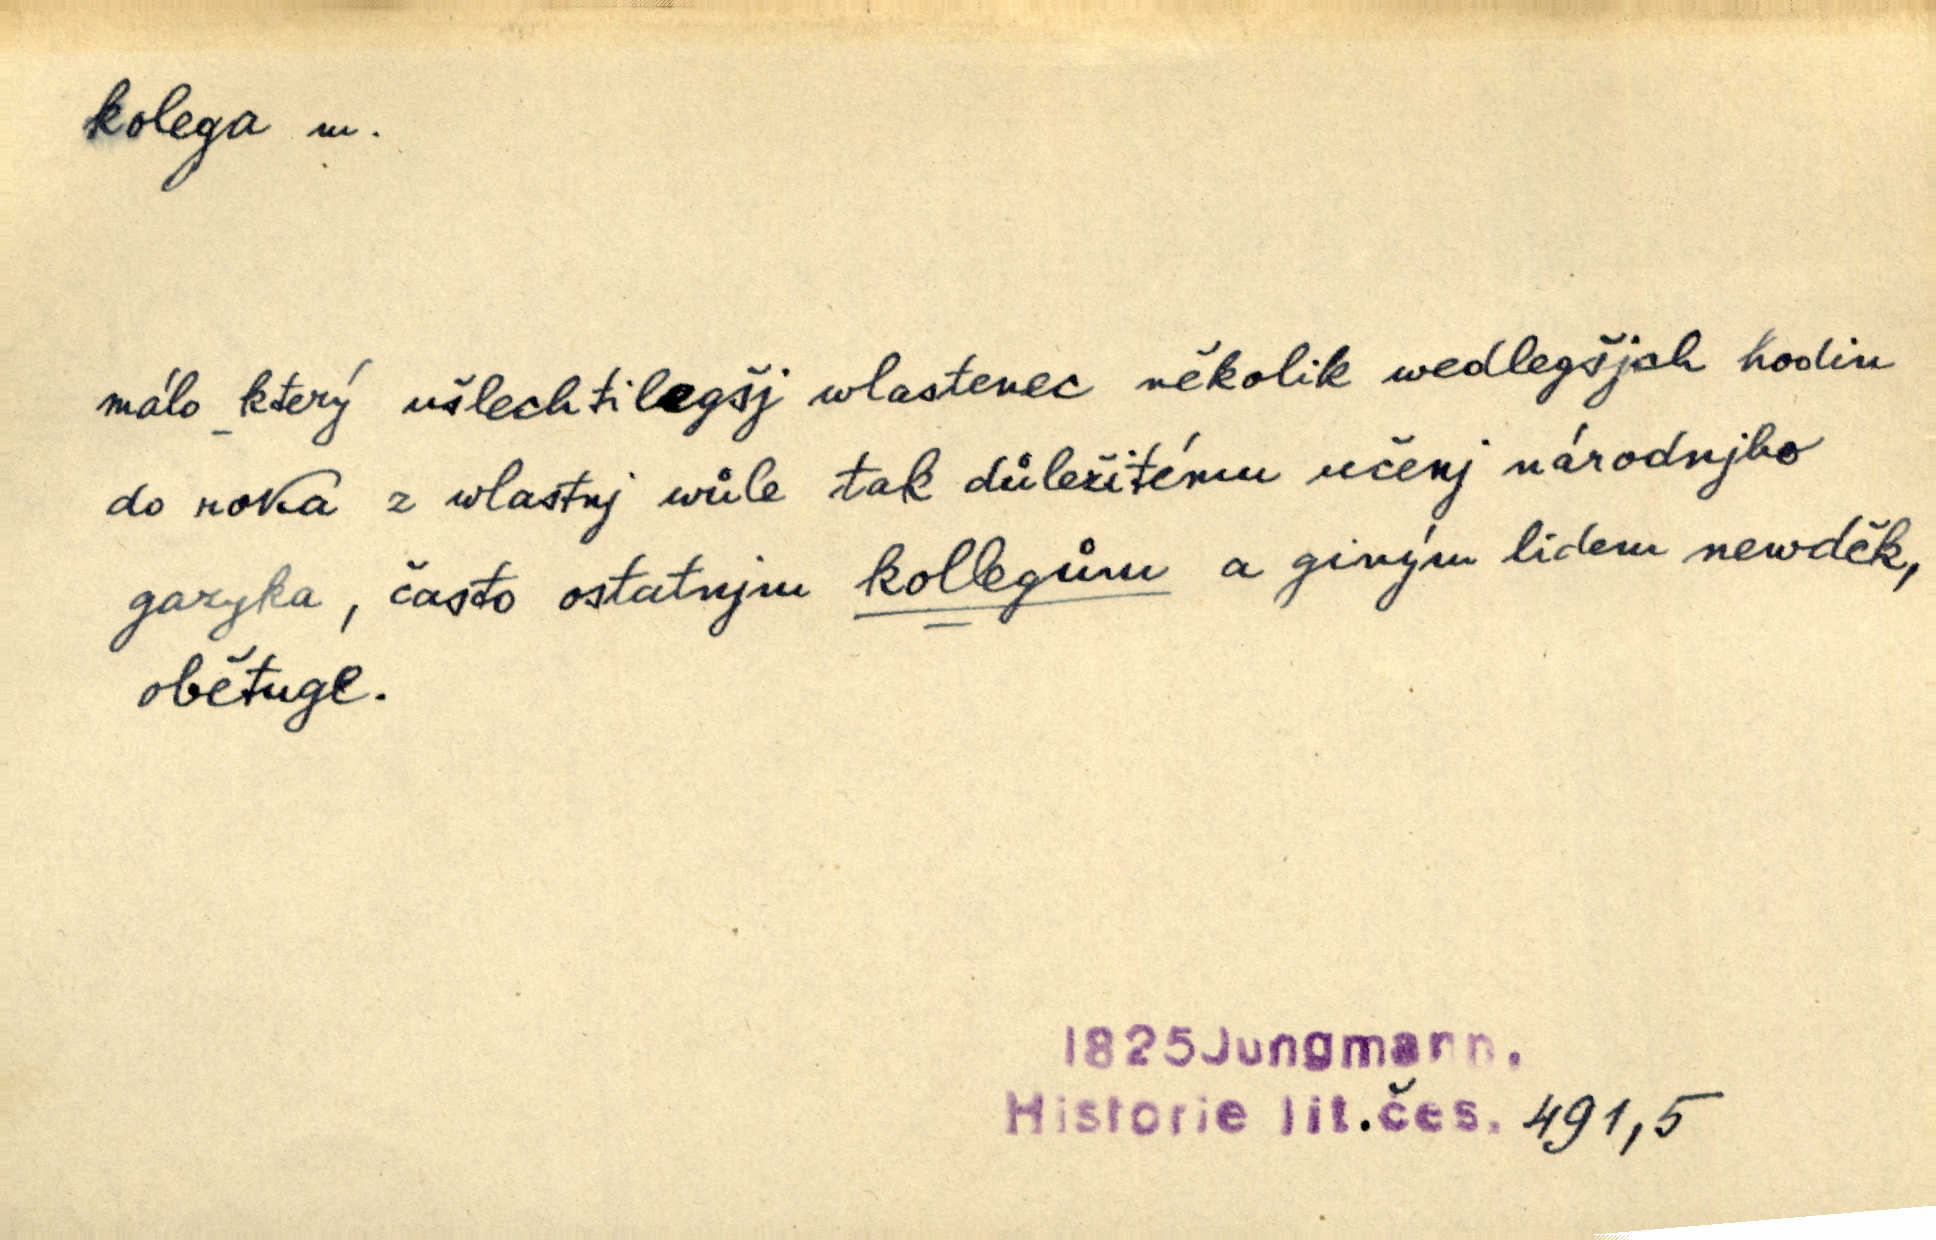 kolega m.
málo_který ušlechtilegšj wlastenec několik wedlegšjch hodin
do roka z wlastnj wůle tak důležitému učenj národnjho
gazyka, často ostatnjm kollegům a giným lidem newděk,
obětuge.
1825 Jungmann.
Historie lit.čes. 491,5